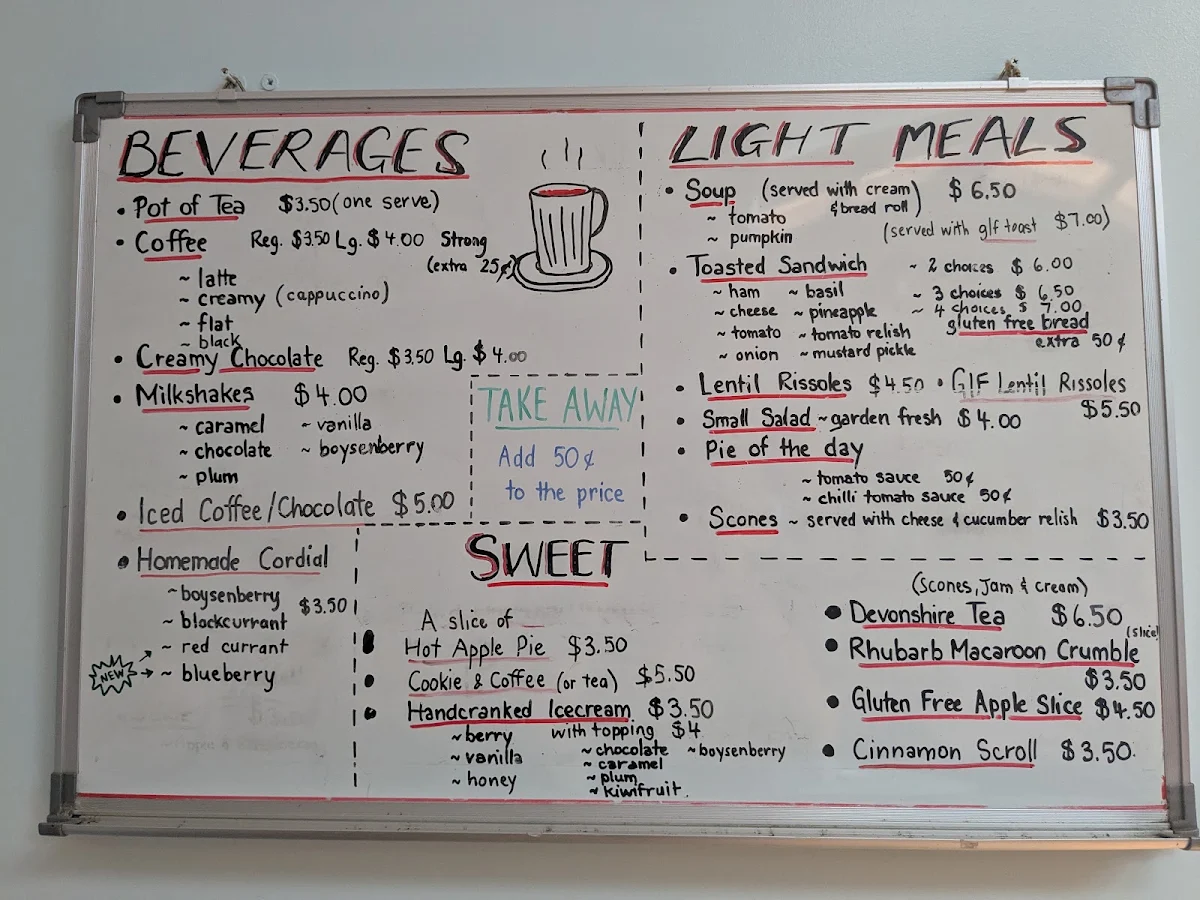 BEVERAGES
• Pot of Tea $3.50 (one serve)
• Coffee Reg. $3.50 Lg. $4.00 Strong
(extra 25¢)
~ latte
~ creamy (cappuccino)
~ flat
~ black
• Creamy Chocolate Reg. $3.50 Lg. $4.00
• Milkshakes $4.00
~ caramel ~ vanilla
~ chocolate ~ boysenberry
~ plum
• Iced Coffee/Chocolate $5.00
• Homemade Cordial
~ boysenberry $3.50
~ blackcurrant
~ red currant
NEW → ~ blueberry
TAKE AWAY
Add 50¢
to the price
LIGHT MEALS
• Soup (served with cream $6.50
& bread roll)
~ tomato
~ pumpkin (served with g/f toast $7.00)
• Toasted Sandwich ~ 2 choices $6.00
~ ham ~ basil ~ 3 choices $6.50
~ cheese ~ pineapple ~ 4 choices $7.00
~ tomato ~ tomato relish gluten free bread
~ onion ~ mustard pickle extra 50¢
• Lentil Rissoles $4.50 • G/F Lentil Rissoles
$5.50
• Small Salad ~ garden fresh $4.00
• Pie of the day
~ tomato sauce 50¢
~ chilli tomato sauce 50¢
• Scones ~ served with cheese & cucumber relish $3.50
SWEET
A slice of
• Hot Apple Pie $3.50
• Cookie & Coffee (or tea) $5.50
• Handcranked Icecream $3.50
~ berry with topping $4
~ vanilla ~ chocolate ~ boysenberry
~ caramel
~ honey ~ plum
~ kiwifruit
(Scones, Jam & cream)
• Devonshire Tea $6.50
(slice)
• Rhubarb Macaroon Crumble
$3.50
• Gluten Free Apple Slice $4.50
• Cinnamon Scroll $3.50